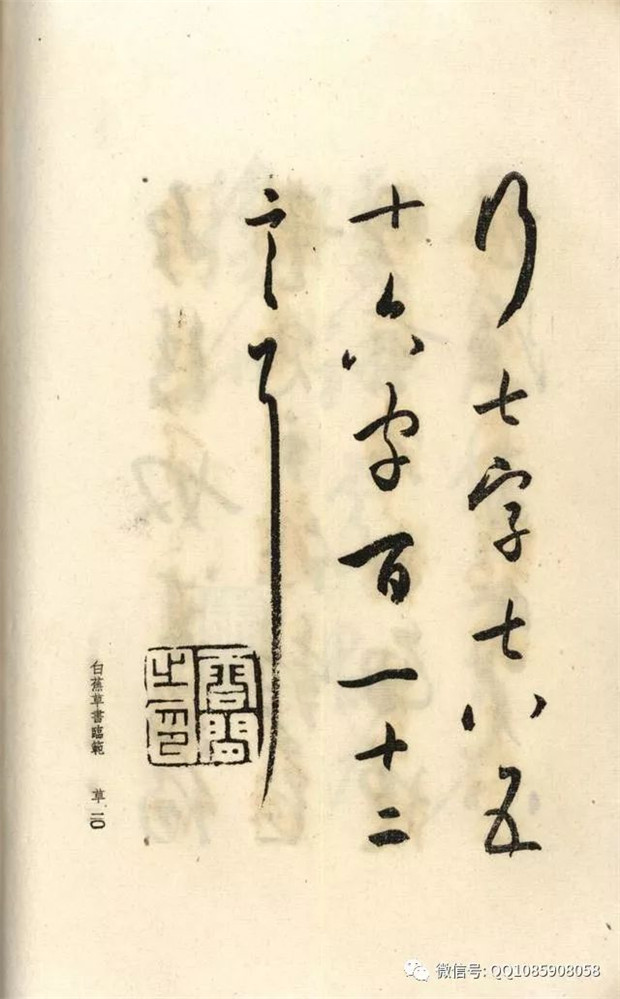 行七字七八五
十六字百一十二
言耳
白蕉草書臨範 草二〇
微信号: QQ1085908058